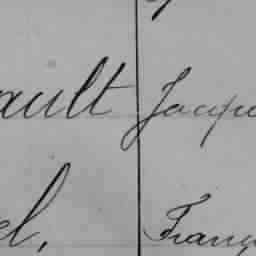 ault Jacque
el, Franç